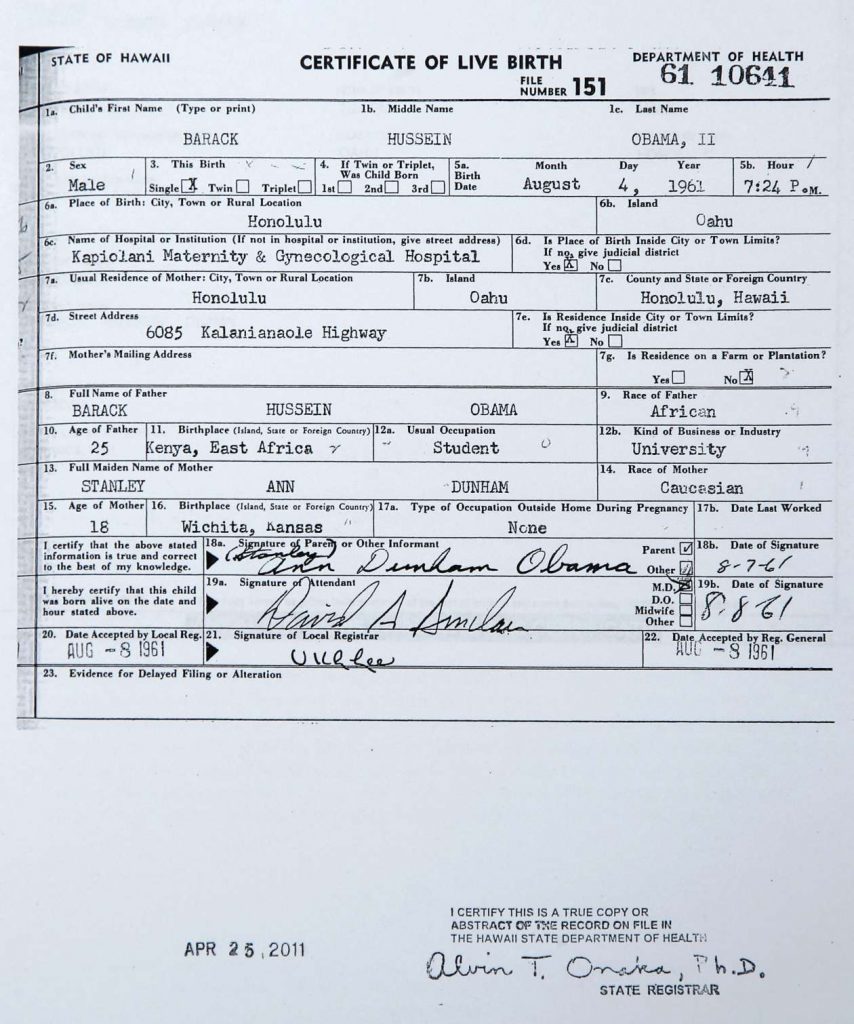 STATE OF HAWAII
CERTIFICATE OF LIVE BIRTH
DEPARTMENT OF HEALTH
FILE NUMBER 151
61 10641
1a. Child's First Name (Type or print)
1b. Middle Name
1c. Last Name
BARACK
HUSSEIN
OBAMA, II
2. Sex
Male
3. This Birth
Single X Twin Triplet
4. If Twin or Triplet,
Was Child Born
1st 2nd 3rd
5a. Birth Date
Month Day Year
August 4, 1961
5b. Hour
7:24 P.M.
6a. Place of Birth: City, Town or Rural Location
Honolulu
6b. Island
Oahu
6c. Name of Hospital or Institution (If not in hospital or institution, give street address)
Kapiolani Maternity & Gynecological Hospital
6d. Is Place of Birth Inside City or Town Limits?
If no, give judicial district
Yes X No
7a. Usual Residence of Mother: City, Town or Rural Location
Honolulu
7b. Island
Oahu
7c. County and State or Foreign Country
Honolulu, Hawaii
7d. Street Address
6085 Kalanianaole Highway
7e. Is Residence Inside City or Town Limits?
If no, give judicial district
Yes X No
7f. Mother's Mailing Address
7g. Is Residence on a Farm or Plantation?
Yes No X
8. Full Name of Father
BARACK HUSSEIN OBAMA
9. Race of Father
African
10. Age of Father
25
11. Birthplace (Island, State or Foreign Country)
Kenya, East Africa
12a. Usual Occupation
Student
12b. Kind of Business or Industry
University
13. Full Maiden Name of Mother
STANLEY ANN DUNHAM
14. Race of Mother
Caucasian
15. Age of Mother
18
16. Birthplace (Island, State or Foreign Country)
Wichita, Kansas
17a. Type of Occupation Outside Home During Pregnancy
None
17b. Date Last Worked
I certify that the above stated
information is true and correct
to the best of my knowledge.
18a. Signature of Parent or Other Informant
(Stanley)
Ann Dunham Obama
Parent
Other
18b. Date of Signature
8-7-61
I hereby certify that this child
was born alive on the date and
hour stated above.
19a. Signature of Attendant
David A Sinclair
M.D. X
D.O.
Midwife
Other
19b. Date of Signature
8-8-61
20. Date Accepted by Local Reg.
AUG -8 1961
21. Signature of Local Registrar
22. Date Accepted by Reg. General
AUG -8 1961
23. Evidence for Delayed Filing or Alteration
APR 25, 2011
I CERTIFY THIS IS A TRUE COPY OR
ABSTRACT OF THE RECORD ON FILE IN
THE HAWAII STATE DEPARTMENT OF HEALTH
Alvin T. Onaka, Ph.D.
STATE REGISTRAR